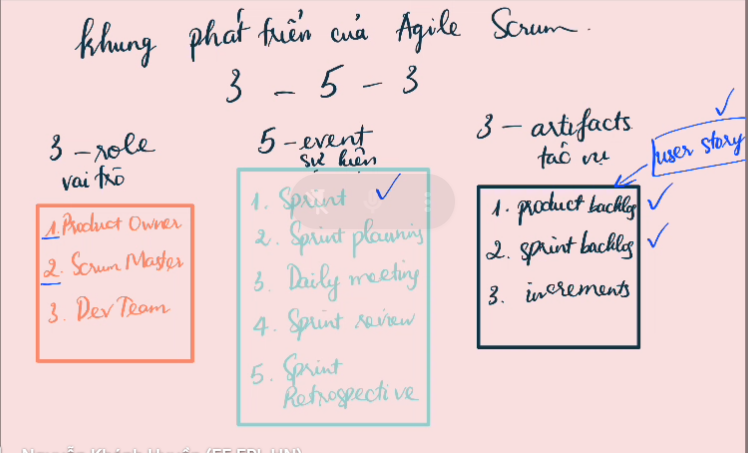 khung phát triển của Agile Scrum.
3 - 5 - 3
3 - role
vai trò
1. Product Owner
2. Scrum Master
3. Dev Team
5 - event
sự kiện
1. Sprint ✓
2. Sprint planning
3. Daily meeting
4. Sprint review
5. Sprint
Retrospective
3 - artifacts
tác vụ
✓
user story
1. product backlog ✓
2. sprint backlog ✓
3. increments